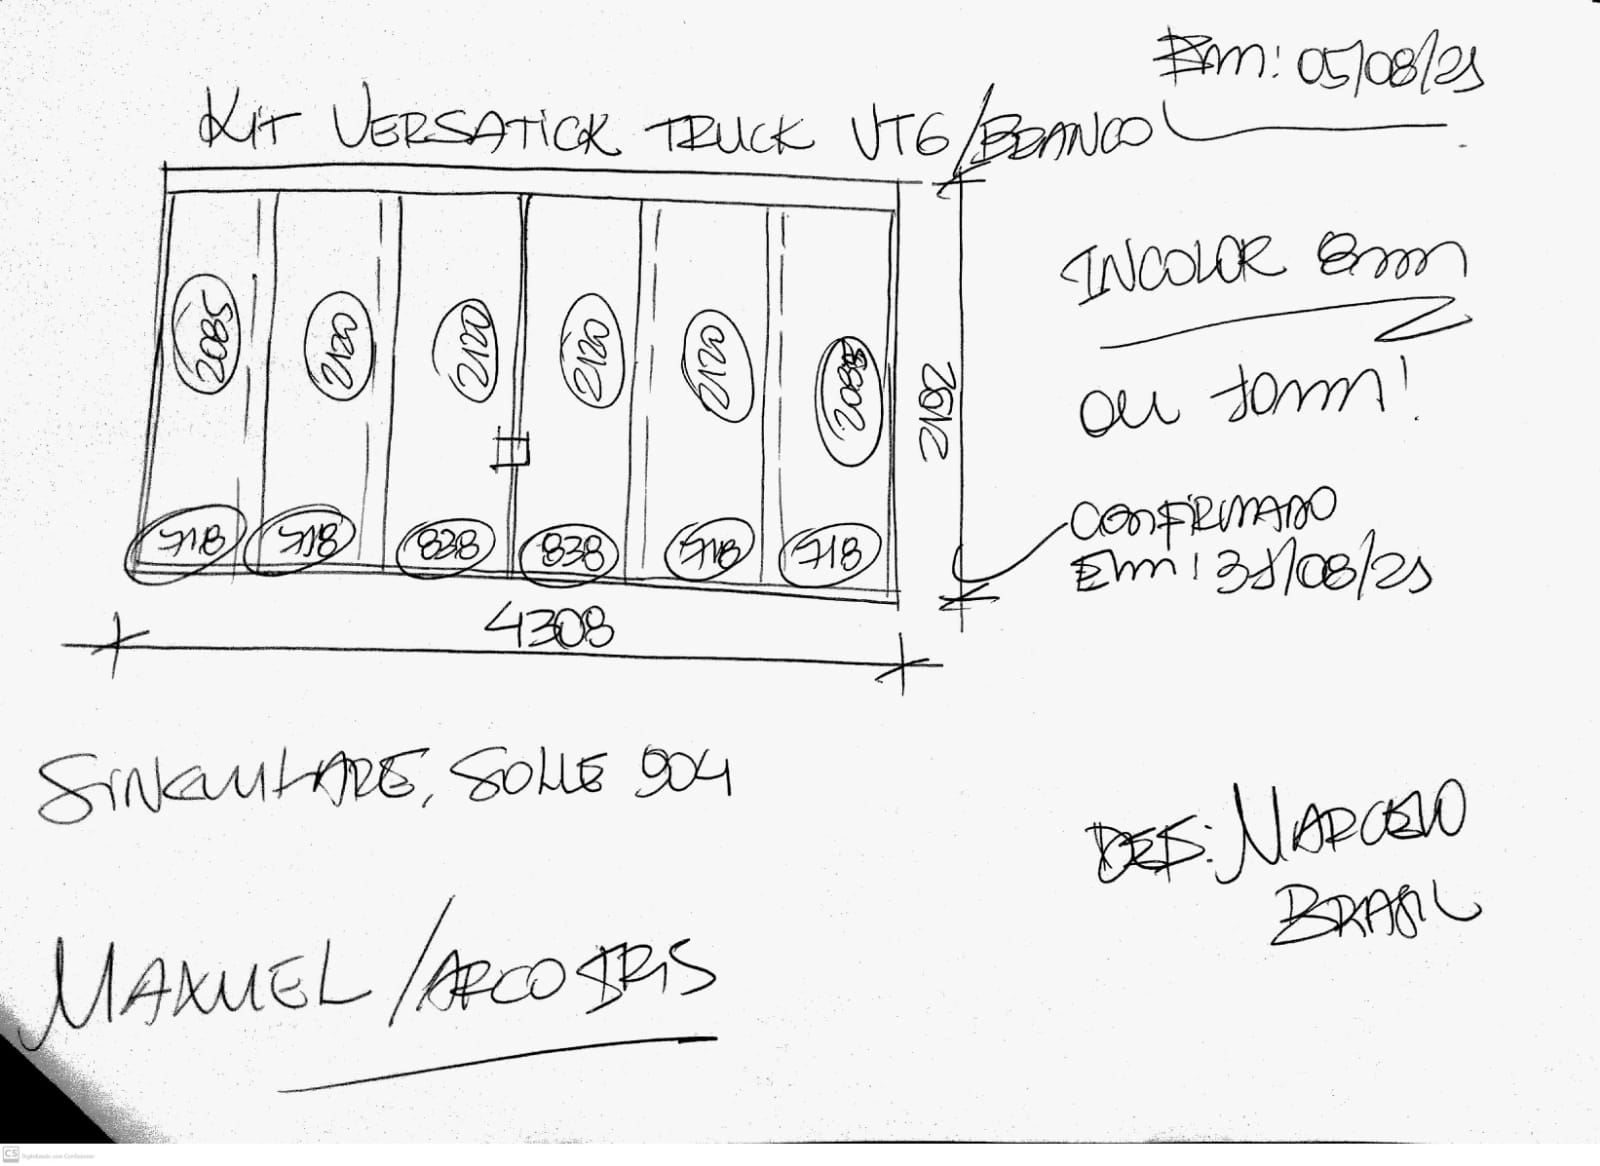 Em: 05/08/21
KIT VERSATICK TRUCK VT6/BRANCO
INCOLOR 8mm
ou 10mm!
2085 2120 2120 2120 2120 2088
2612
718 718 838 838 718 718
CONFIRMADO
Em: 31/08/21
4308
SINGULARE, SOLLE 904
DES: MARCELO
BRASIL
MANUEL/ARCO IRIS
CS Digitalizado com CamScanner